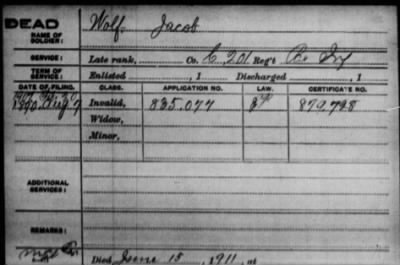 DEAD
NAME OF SOLDIER: Wolf, Jacob
SERVICE: Late rank, Co. C, 201 Reg't Pa Inf
TERM OF SERVICE: Enlisted , 1 Discharged , 1
DATE OF FILING. CLASS. APPLICATION NO. LAW. CERTIFICATE NO.
1890, Aug 7 Invalid, 835.077 879.798
Widow,
Minor,
ADDITIONAL SERVICES:
REMARKS:
Died June 15, 1911, at